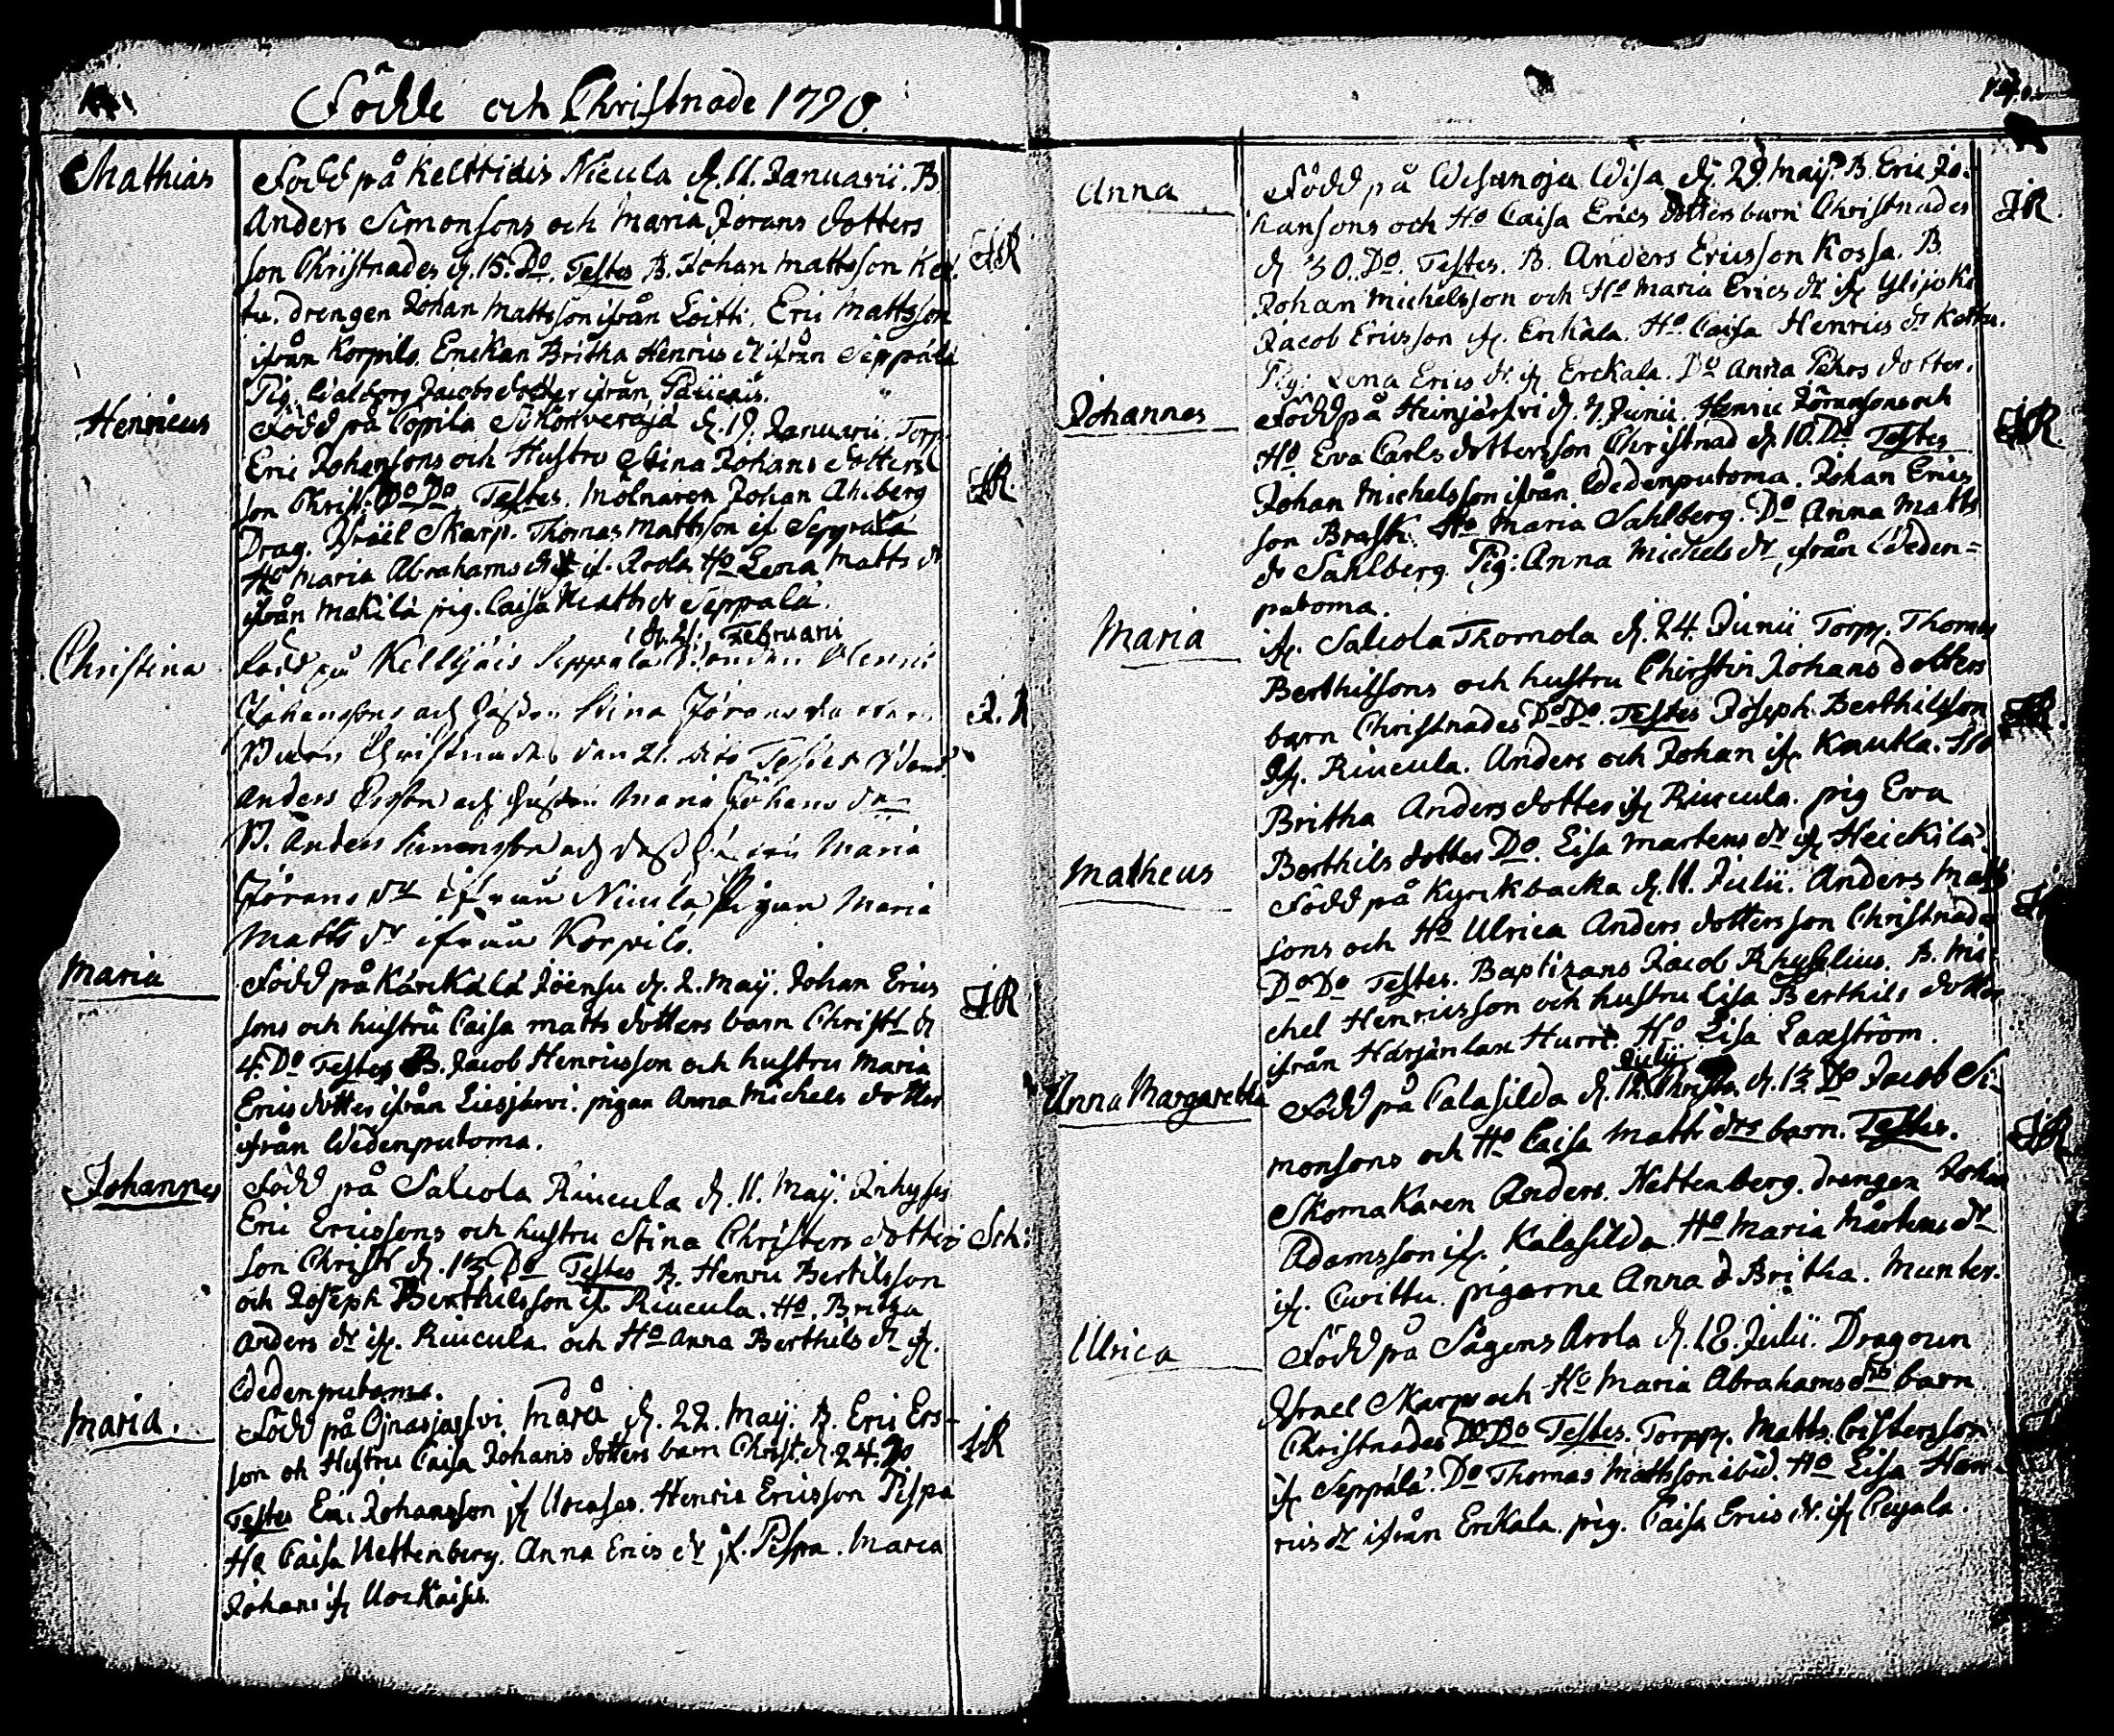 Födde och Christnade 1790.
Mathias
Född på Kelttiäis Nicula d. 11. Januarii. B.
Anders Simonsons och Maria Jörans dotters
son Christnades d. 15. Do. Testes B. Johan Mattsson Kert
tu. drengen Johan Mattsson ifrån Loitti. Eric Mattsson
ifrån Korpils. Enckan Britha Henrics dr ifrån Seppälä
Pig. Walborg Jacobs dotter ifrån
JR
Henricus
Född på Copila d. 19. Januarii. Torp.
Eric Johansons och Hustru Stina Johans dotters
son Christ. Do Do Testes. Molnaren Johan Ahlberg
Drag. Israel Skarp. Thomas Mattsson if. Seppälä
Ho Maria Abrahams dr if. Arola Ho Lena Matts dr
ifrån Mäkilä pig. Caisa Matts dr Seppälä.
JR.
Christina
d. 21. Februarii
Född på Kelltjäis Seppälä Bonden Henric
Johanssons och Hustru Stina Jörans
Barn Christnades den 21. dito Testes
Anders Ersson och Hustru Maria Johans dr
B. Anders Simonsson och dess Hustru Maria
Jörans dr ifrån Nicula, Pigan Maria
Matts dr ifrån Korpils.
J.R
Maria
Född på Kärckälä Jöensu d. 2. Maÿ. Johan Erics
sons och hustru Caisa Matts dotters barn Christ d
4. Do Testes B. Jacob Henricsson och hustru Maria
Erics dotter ifrån Liesjärvi. pigan Anna Michels dotter
ifrån Wedenputoma.
JR
Johannes
Född på Salcola Riucula d. 11. Maÿ. Inhyses
Eric Ericssons och hustru Stina Christers dotters
son Christ d. 13 Do Testes B. Henric Bertilsson
och Joseph Berthilsson if. Riucula. Ho. Britha
Anders dr if. Riucula och Ho Anna Berthils dr if.
Wedenputoma.
Sch:
Maria.
Född på Ojnasjärvi Mara d. 22. Maÿ. B. Eric Ers-
son och Hustru Caisa Johans dotters barn Christ. d. 24. Do
Testes Eric Johansson if Henric Ericsson Pispa
Ho Caisa Nettenberg. Anna Erics dr if. Pispa. Maria
Johans if
JR
Anna
Född på Wesanoja Wisa d. 29. Maÿ. B. Eric Jo-
hansons och Ho Caisa Erics dotters barn Christnades
d. 30. Do. Testes. B. Anders Ericsson Kossa. B.
Johan Michelsson och Ho Maria Erics dr if Ylijoki
Jacob Ericsson if. Erckala. Ho. Caisa Henrics dr Kerttu.
Pig: Lena Erics dr. if Erckala. Do Anna Pehrs dotter.
JR.
Johannes
Född på Heinjärfvi d. 7. Junii. Henric Jöransons och
Ho. Eva Carls dotters son Christnad d. 10. Do Testes
Johan Michelsson ifrån Wedenputoma. Johan Erics
son Brask. Ho Maria Sahlberg. Do Anna Matts
dr Sahlberg. Pig: Anna Michels dr ifrån Weden=
putoma.
JR.
Maria
if. Salcola Thomola d. 24. Junii Torp. Thomas
Berthilsons och hustru Chirstin Johans dotters
barn Christnades Do Do. Testes Joseph Berthilsson
if. Riucula. Anders och Johan if Kautla. Ho
Britha Anders dotter if Riucula. pig Eva
Berthils dotter Do. Lisa Martens dr if Heickilä.
JR.
Matheus
Född på Kyrckbacka d. 11. Julii. Anders Matts
sons och Ho Ulrica Anders dotters son Christnades
Do Do Testes. Baptizans Jacob B. Mi-
chel Henricsson och hustru Lisa Berthils dotter
ifrån Härjänlax Hurri. Ho. Lisa Laxström.
Anna Margaretha
Julii
Född på Calasilda d. 12. Christ. d. 13. Do Jacob Si-
monsons och Ho Caisa Matts drs barn. Testes.
Skomakaren Anders. Nettenberg. drengen Johan
Adamsson if. Kalasilda. Ho Maria Mårtens dr
if. Cwittu. pigorne Anna & Britha. Munter.
JR
Ulrica
Född på Sågens Arola d. 18. Julii. Dragoun
Israel Skarps och Ho Maria Abrahams drs barn
Christnades Do Do Testes. Torpp. Matts. Cristersson
if Seppälä. Do Thomas Mattsson ibid. Ho Lisa Hen-
rics dr ifrån Erckala. pig. Caisa Erics dr. if Ceyala.